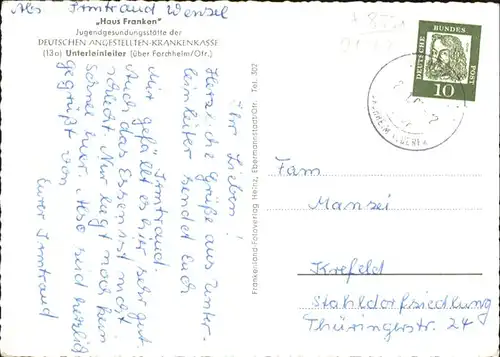 Abs. Irmtraud Wensel
„Haus Franken"
Jugendgesundungsstätte der
DEUTSCHEN ANGESTELLTEN-KRANKENKASSE
(13a) Unterleinleiter (über Forchheim/Ofr.)
Ihr Lieben!
Herzliche Grüße aus Unter-
leinleiter sendet Euch
Irmtraud.
Mir gefällt es hier sehr gut.
Auch das Essen ist nicht
schlecht. Nur liegt noch kein
Schnee hier. Also seid herzlich
gegrüßt von
Eurer Irmtraud
Frankenland-Fotoverlag Heinz, Ebermannstadt/Ofr. Tel. 302
DEUTSCHE BUNDES POST
10
Fam
Mansei
Krefeld
Stahldorfsiedlung
Thüringerstr. 24